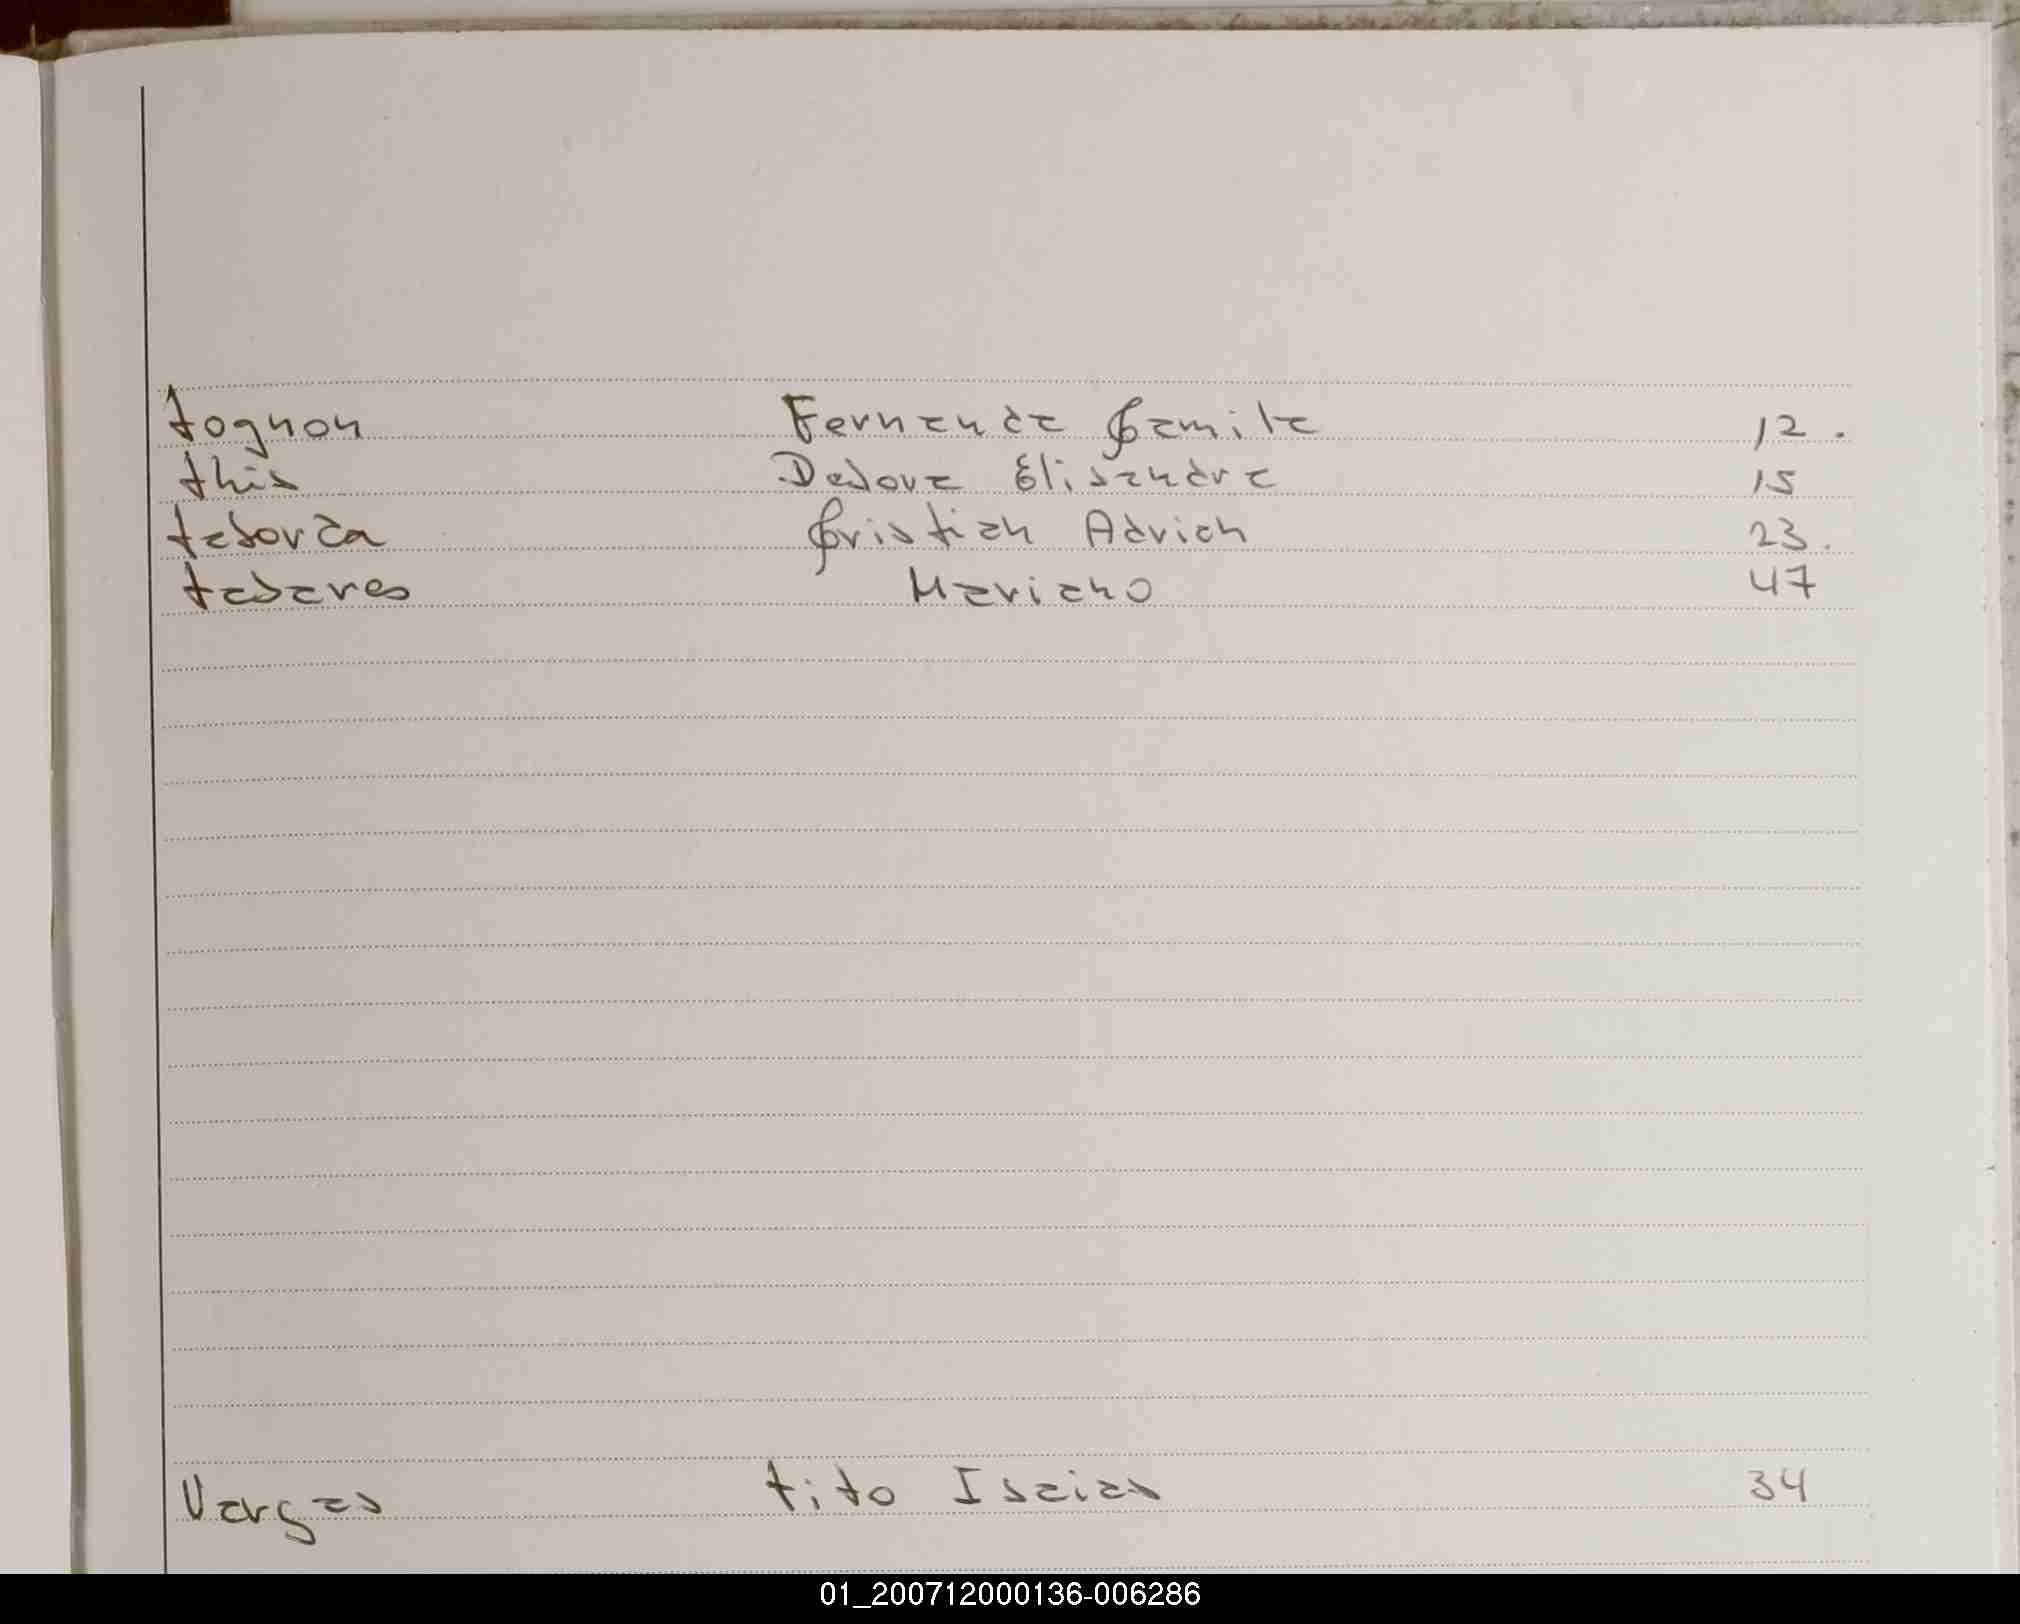 Tognon Fernanda Camila 12.
This Debora Elisandra 15
Taborda Cristian Adrian 23.
Tabares Mariano 47
Vargas Tito Isaias 34
01_200712000136-006286